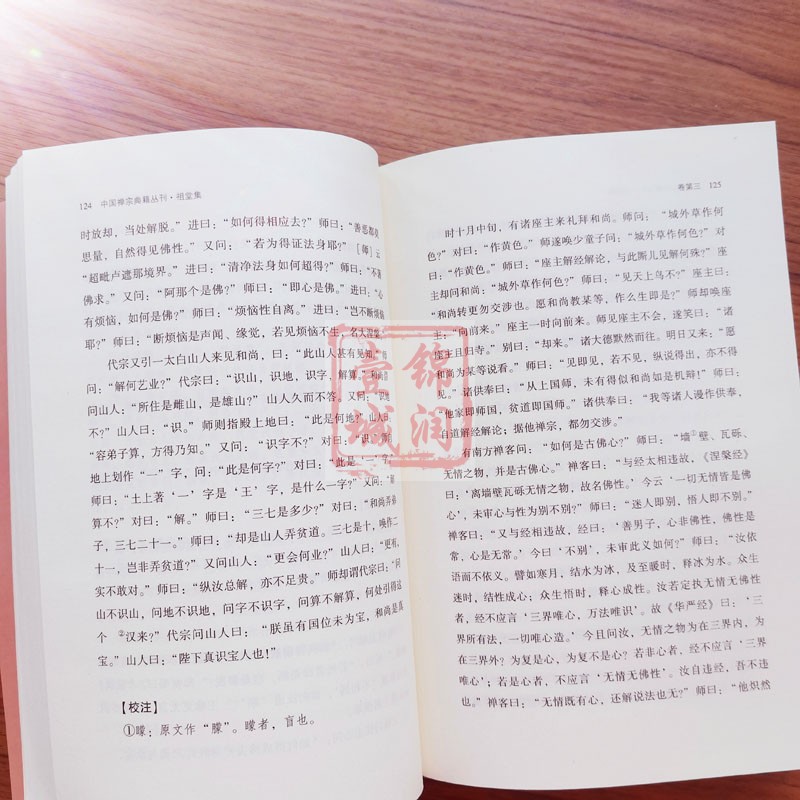 124 中国禅宗典籍丛刊·祖堂集
时放却，当处解脱。”进曰：“如何得相应去？”师曰：“善恶都莫
思量，自然得见佛性。”又问：“若为得证法身耶？”［师］云：
“超毗卢遮那境界。”进曰：“清净法身如何超得？”师曰：“不著
佛求。”又问：“阿那个是佛？”师曰：“即心是佛。”进曰：“心
有烦恼，如何是佛？”师曰：“烦恼性自离。”进曰：“岂不断烦恼
耶？”师曰：“断烦恼是声闻、缘觉，若见烦恼不生，名大涅槃。”
代宗又引一太白山人来见和尚，曰：“此山人甚有见知。”师
问：“解何艺业？”代宗曰：“识山，识地，识字，解算。”师
问山人：“所住是雌山，是雄山？”山人久而不答。又问：“识地
不？”山人曰：“识。”师则指殿上地曰：“此是何地？”山人曰：
“容弟子算，方得乃知。”又问：“识字不？”对曰：“识。”师
地上划作“一”字，问：“此是何字？”对曰：“此是一字。”
师曰：“土上著‘一’字是‘王’字，是什么一字？”又问：“解
算不？”对曰：“解。”师曰：“三七是多少？”对曰：“和尚弄弟
子，三七二十一。”师曰：“却是山人弄贫道。三七是十，唤作二
十一，岂非弄贫道？”又问山人：“更会何业？”山人曰：“更有，
实不敢对。”师曰：“纵汝总解，亦不足贵。”师却谓代宗曰：“问
山不识山，问地不识地，问字不识字，问算不解算，何处引得这
个 ②汉来？”代宗问山人曰：“朕虽有国位未为宝，和尚是真
宝。”山人曰：“陛下真识宝人也！”
【校注】
①矇：原文作“朦”。矇者，盲也。
卷第三 125
时十月中旬，有诸座主来礼拜和尚。师问：“城外草作何
色？”对曰：“作黄色。”师遂唤少童子问：“城外草作何色？”对
曰：“作黄色。”师曰：“座主解经解论，与此厮儿见解何殊？”座
主却问和尚：“城外草作何色？”师曰：“见天上鸟不？”座主曰：
“和尚转更勿交涉也。愿和尚教某等，作么生即是？”师却唤座
主：“向前来。”座主一时向前来。师见座主不会，遂笑曰：“诸
座主且归寺。”别曰：“却来。”诸大德默然而往。明日又来：“愿
和尚为某等说看。”师曰：“见即见，若不见，纵说得出，亦不得
见。”诸供奉曰：“从上国师，未有得似和尚如是机辩！”师曰：
“他家即师国，贫道即国师。”诸供奉曰：“我等诸人漫作供奉，
自道解经解论；据他禅宗，都勿交涉。”
有南方禅客问：“如何是古佛心？”师曰：“墙①壁、瓦砾、
无情之物，并是古佛心。”禅客曰：“与经太相违故，《涅槃经》
曰：‘离墙壁瓦砾无情之物，故名佛性。’今云‘一切无情皆是佛
心’，未审心与性为别不别？”师曰：“迷人即别，悟人即不别。”
禅客曰：“又与经相违故，经曰：‘善男子，心非佛性，佛性是
常，心是无常。’今曰‘不别’，未审此义如何？”师曰：“汝依
语而不依义。譬如寒月，结水为冰，及至暖时，释冰为水。众生
迷时，结性成心；众生悟时，释心成性。汝若定执无情无佛性
者，经不应言‘三界唯心，万法唯识’。故《华严经》曰：‘三界
所有法，一切唯心造。’今且问汝，无情之物为在三界内，为
在三界外？为复是心，为复不是心？若非心者，经不应言‘三界
唯心’；若是心者，不应言‘无情无佛性’。汝自违经，吾不违
也。”禅客曰：“无情既有心，还解说法也无？”师曰：“他炽然
壹城
锦润